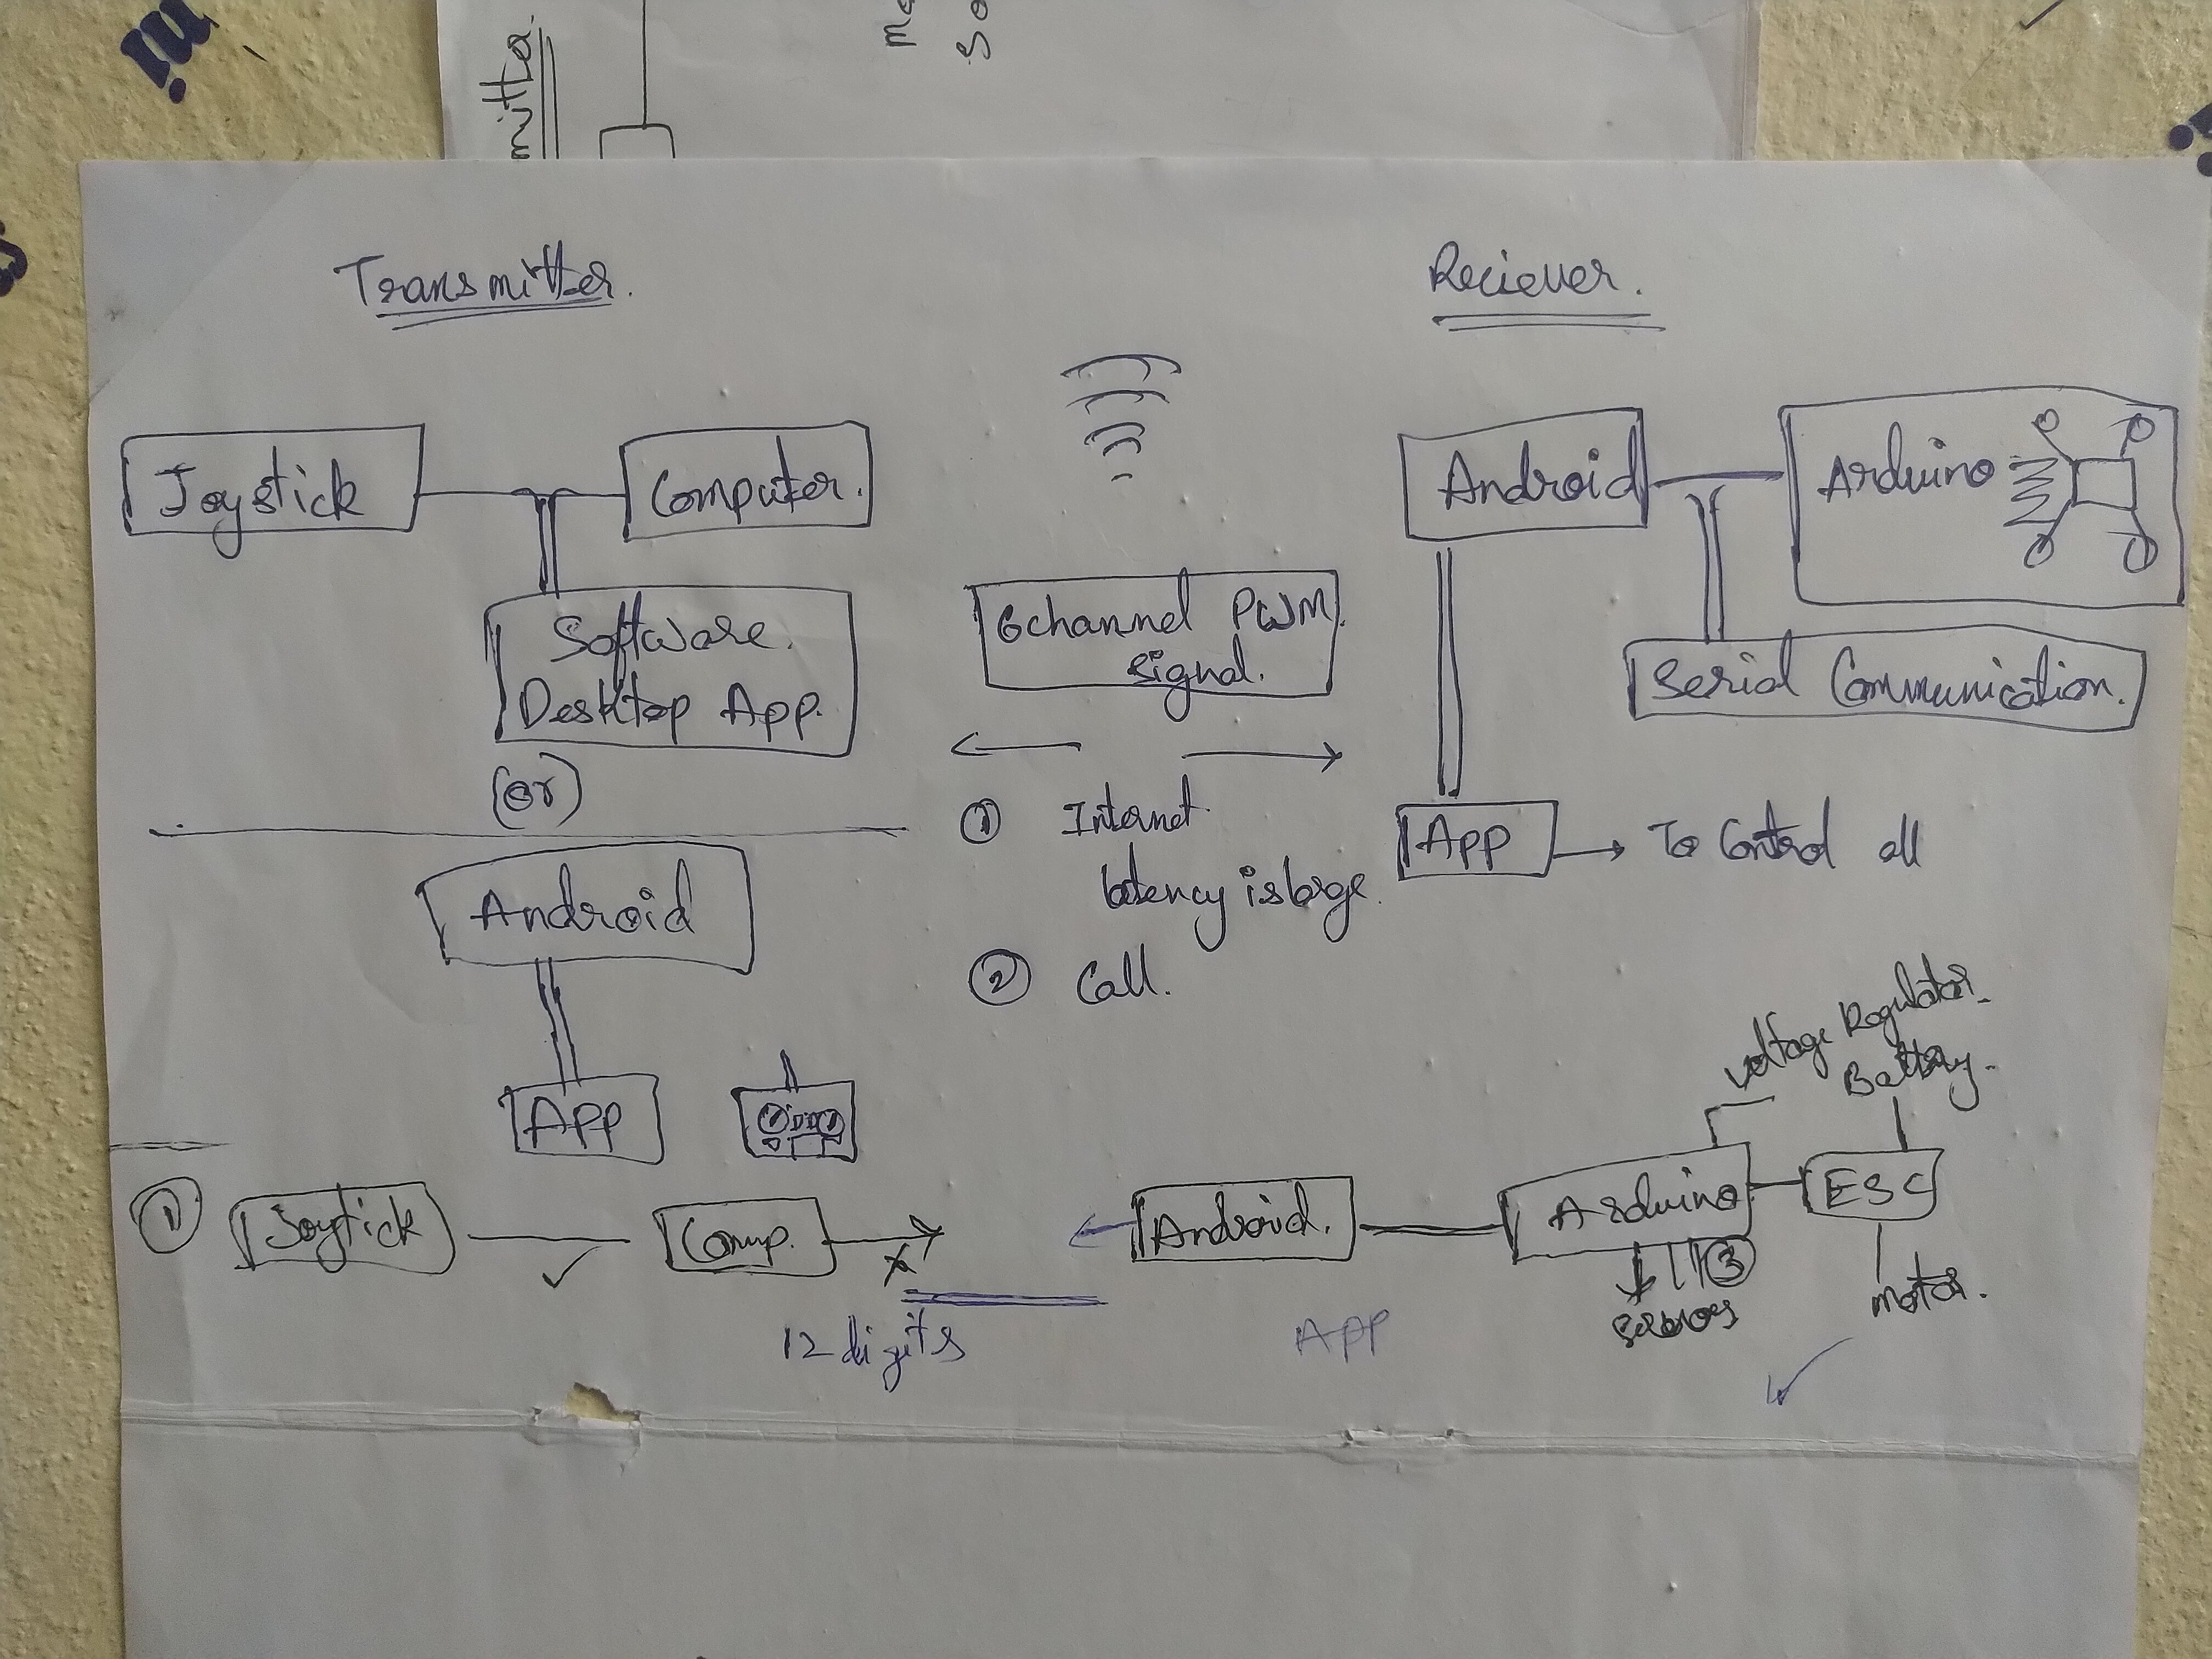 mitter.
Transmitter.
Reciever.
Joystick
Computer.
Software.
Desktop App.
(or)
Android
App
6channel PWM
signal.
① Internet
latency is large.
② Call.
Android
Arduino
Serial Communication.
App → To Control all
① Joytick
Comp.
x
12 digits
Android.
APP
Arduino
voltage Regulator
Battery.
ESC
③
servos
motor.